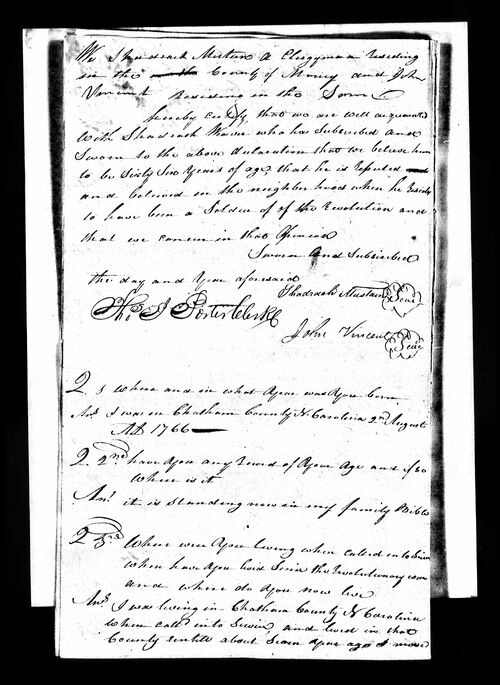 We Shadrach Mustan a Clergyman Residing
in the County of Maury and John
Vincent Residing in the Same
hereby certify that we are well acquainted
with Shadrach Weaver who has Subscribed and
Sworn to the above declaration that we believe him
to be Sixty Six Years of age that he is reputed
and believed in the neighborhood where he Resides
to have been a Soldier of of the Revolution and
that we concur in that Opinion
Sworn and Subscribed
the day and year aforesaid
Shadrach Mustain Seal
Thos J Porter Clerk
John Vincent Seal
Q. 1 where and in what Year was You born
Ans. I was in Chatham County N Carolina 2nd August
AD 1766
Q. 2nd have You any record of Your Age and if so
where is it
Ans. it is Standing now in my family Bible
Q 3rd Where were You living when called into Servi
where have You lived Since the Revolutionary war
and where do You now live
Ans. I was living in Chatham County N Carolina
when calld into Servi and lived in that
County untill about Seven Year ago I moved